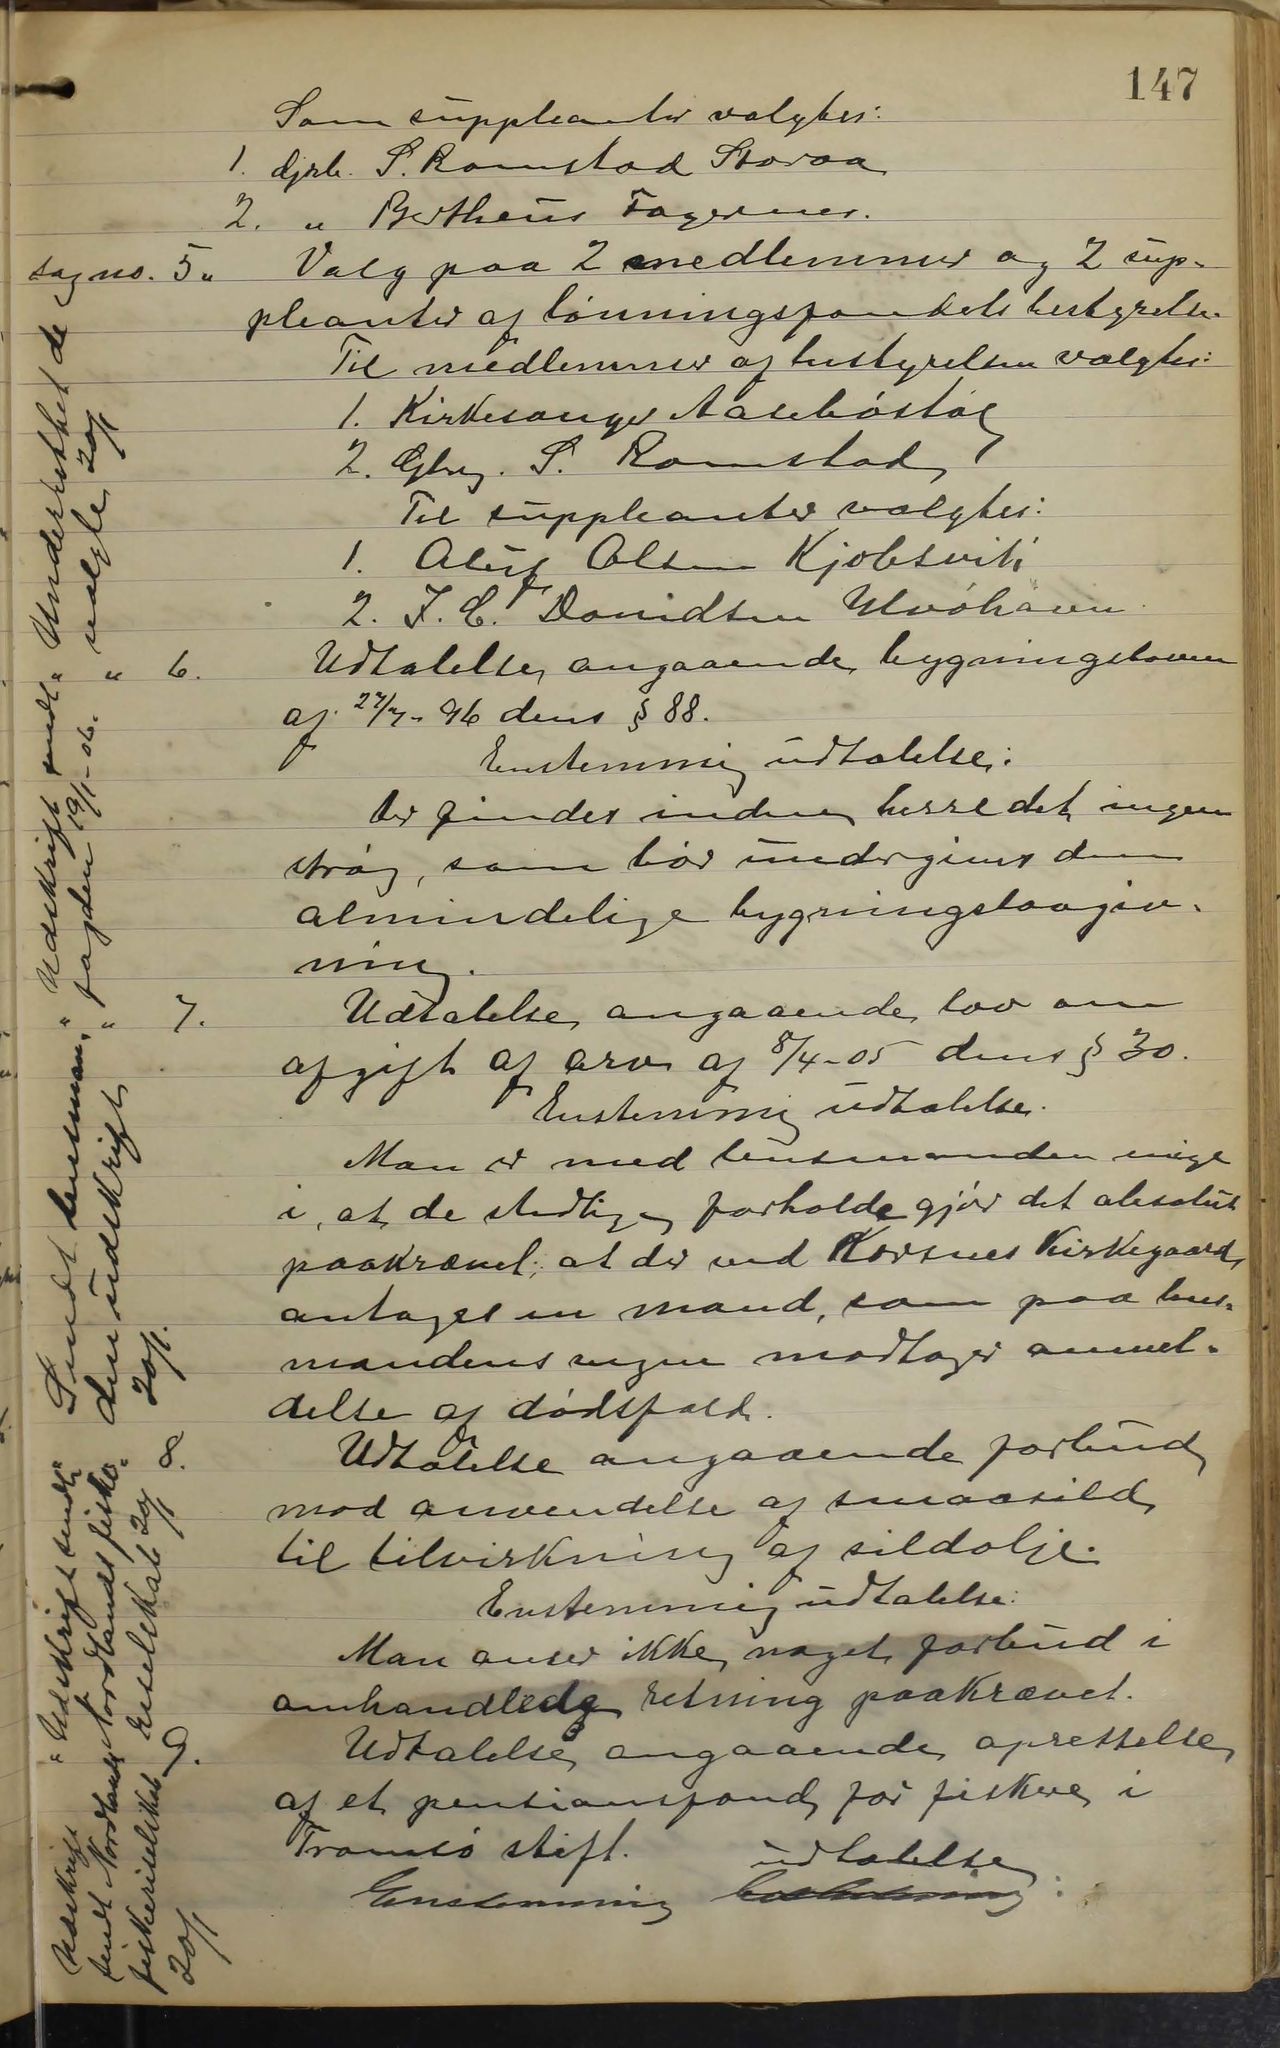 147
Som suppleanter valgtes:
1. Gjrb. S. Ramstad Storaa
2. " Bertheus Fagernes.
sag no. 5. Valg paa 2 medlemmer og 2 sup-
pleanter af lönningsfondets bestyrelse.
Til medlemmer af bestyrelsen valgtes:
1. Kirkesanger Aaseböstöl
2. Gbrg. S. Ramstad
Til suppleanter valgtes:
1. Oluf Olsen Kjobsvik
2. J. C. Davidsen Ulvöhavn
" 6. Udtalelse angaaende bygningsloven
af 27/7-96 dens § 88.
Enstemmig udtalelse:
Der findes inden herredet ingen
strög, som bör undergives den
almindelige bygningslovgiv-
ning.
" 7. Udtalelse angaaende lov om
afgift af arv af 8/4-05 dens § 30.
Enstemmig udtalelse.
Man er med lensmanden enige
i, at de stedlige forholde gjör det absolut
paakrævet, at der ved Korsnes Kirkegaard
antages en mand, som paa lens-
mandens vegne modtager anmel-
delse af dödsfald.
8. Udtalelse angaaende forbud
mod anvendelse af smaasild
til tilvirkning af sildolje.
Enstemmig udtalelse:
Man anser ikke noget forbud i
omhandlede retning paakrævet.
9. Udtalelse angaaende oprettelse
af et pensionsfond for fiskere i
Tromsö stift.
udtalelse
Enstemmig beslutning:
Underrettet de
valgte 20/1
Udskrift sendt
fogden 19/1-06.
Sendt lensman-
den udskrift
20/1.
Udskrift sendt
Nordlands fiske-
riselskab 20/1
Udskrift
sendt Nordlands
fiskeriselskab
20/1